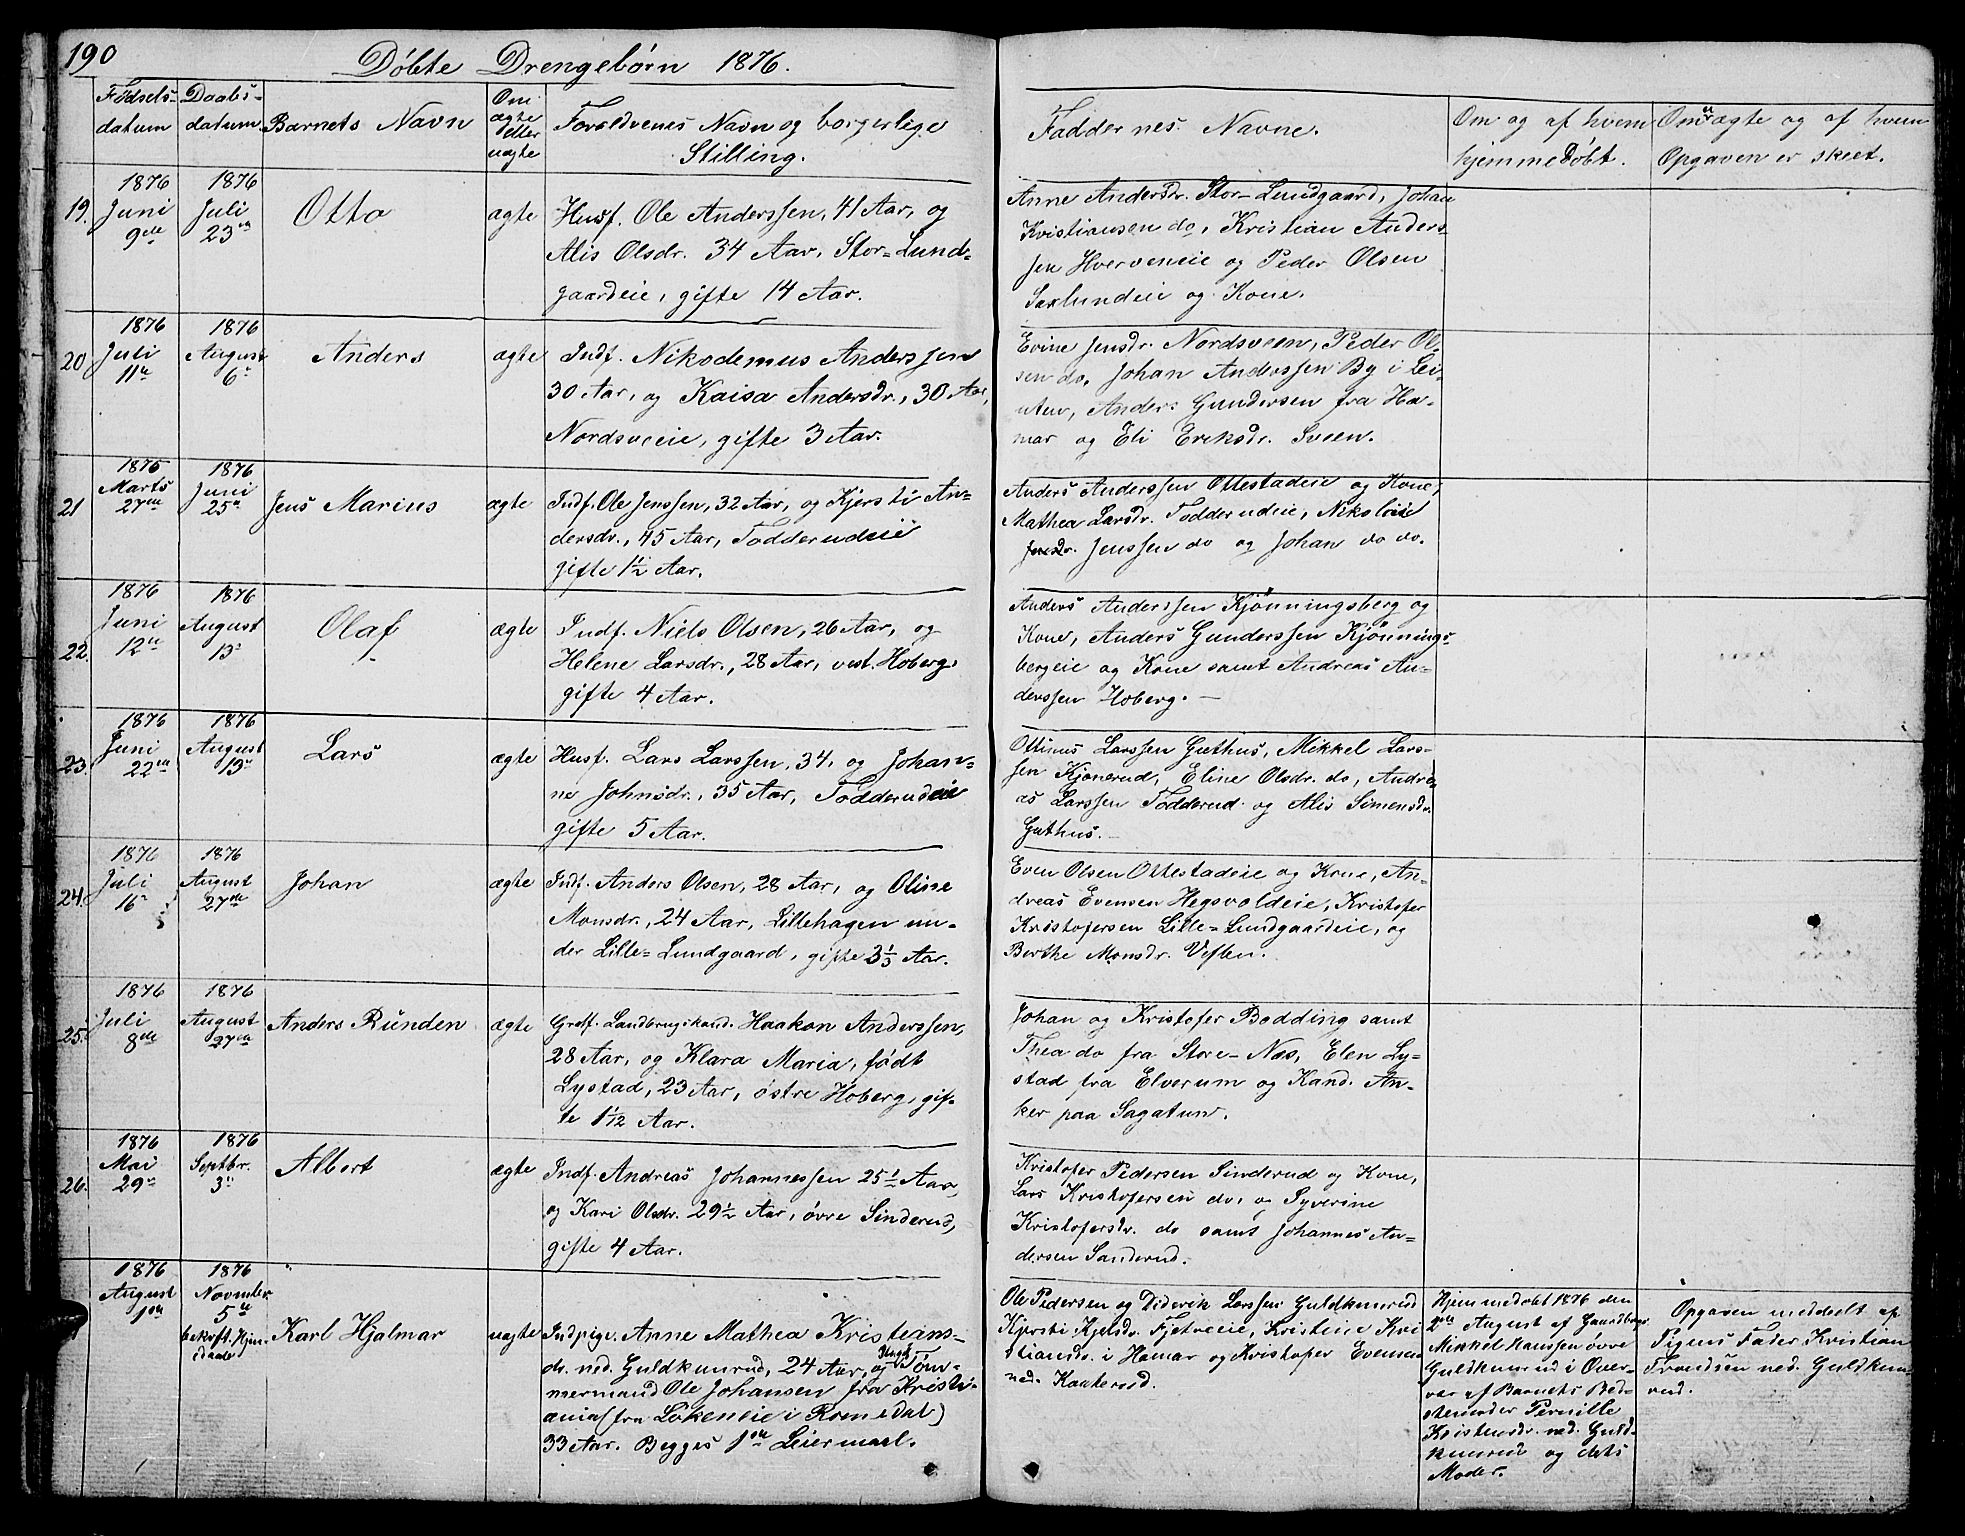 190
Döbte Drengebörn 1876.
Födsels-
datum
Daabs-
datum
Barnets Navn
Om
ægte
eller
uægte
Forældrenes Navn og borgerlige
Stilling.
Faddernes Navne.
Om og af hvem
hjemmedöbt.
Om uægte og af hvem
Opgaven er skeet.
19.
1876
Juni
9de
1876
Juli
23de
Otto
ægte
Husf. Ole Anderssen, 41 Aar, og
Alis Olsdr. 34 Aar, Stor-Lund-
gaardeie, gifte 14 Aar.
Anne Andersdr. Stor-Lundgaard, Johan
Kristiansen do, Kristian Anders
sen Hverveneie og Peder Olsen
Saxlundeie og Kone.
20
1876
Juli
11te
1876
August
6te
Anders
ægte
Indf. Nikodemus Anderssen
30 Aar, og Kaisa Andersdr., 30 Aar,
Nordsveeie, gifte 3 Aar.
Evine Jensdr. Nordsveen, Peder Ol-
sen do, Johan Anderssen By i Lei-
uten, Anders Gundersen fra Ha-
mar og Eli Eriksdr. Sveen.
21
1876
Marts
27de
1876
Juni
25de
Jens Marius
ægte
Indf. Ole Jenssen, 32 Aar, og Kjersti An-
dersdr., 45 Aar, Todderudeie
gifte 1½ Aar.
Anders Anderssen Ottestadeie og Kone,
Mathea Larsdr. Todderudeie, Nikolai
Jenssen do og Johan do do.
22.
1876
Juni
12te
1876
August
13de
Olaf
ægte
Indf. Niels Olsen, 26 Aar, og
Helene Larsdr., 28 Aar, vest. Hoberg,
gifte 4 Aar.
Anders Anderssen Kjönningsberg og
Kone, Anders Gunderssen Kjönnings-
bergeie og Kone samt Andreas An-
derssen Hoberg.
23.
1876
Juni
22de
1876
August
13de
Lars
ægte
Husf. Lars Larssen, 34, og Johan-
ne Johnsdr., 35 Aar, Todderudeie
gifte 5 Aar.
Ottinus Larssen Guthus, Mikkel Lars-
sen Kjonerud, Eline Olsdr. do, Andre-
as Larssen Todderud og Alis Simensdr.
Guthus.
24.
1876
Juli
16de
1876
August
27de
Johan
ægte
Indf. Anders Olsen, 28 Aar, og Oline
Monsdr., 24 Aar, Lillehagen un-
der Lille-Lundgaard, gifte 3⅓ Aar.
Even Olsen Ottestadeie og Kone, An-
dreas Evensen Hegsvoldeie, Kristofer
Kristofersen Lille-Lundgaardeie, og
Berthe Monsdr. Veflen.
25.
1876
Juli
8de
1876
August
27de
Anders Runden
ægte
Landbrugskand. Haakon Anderssen,
28 Aar, og Klara Maria, födt
Lystad, 23 Aar, östre Hoberg, gif-
te 1½ Aar.
Johan og Kristofer Bodding samt
Thea do fra Store-Næs, Elen Ly-
stad fra Elverum og Kand. An-
ker paa Sagatun.
26.
1876
Mai
29de
1876
Septbr.
3de
Albert
ægte
Indf. Andreas Johannessen 25½ Aar,
og Kari Olsdr. 29½ Aar, övre Sinderud,
gifte 4 Aar.
Kristofer Pedersen Sinderud og Kone,
Lars Kristofersen do, og Syverine
Kristofersdr. do samt Johannes An-
dersen Sanderud.
1876
August
1ste
1876
November
5te
bekræft. Hjem-
Karl Hjalmar
uægte
Indpige Anne Mathea Kristians-
dr. ned. Guldkunrud, 24 Aar, og Ungk. Töm-
mermand Ole Johansen fra Kristi-
ania (fra Lökeneie i Romedal)
33 Aar. Begges 1ste Leiermaal.
Ole Pedersen og Diderik Larssen Guldkunrud
Kjersti Kjelsdr. Fjetveeie, Kristine Kri
stiansdr. i Hamar og Kristofer Evensen
ned. Kaakerud.
Hjemmedöbt 1876 den
2den August af Gaardbr.
Mikkel Hanssen övre
Guldkunrud i Over-
vær af Barnets Bed-
stemoder Pernille
Kristensdr. ned. Guld-
kunrud og dets
Moder.
Opgaven meddelt af
Pigens Fader Kristian
Trondsen ned. Guldkun-
rud.